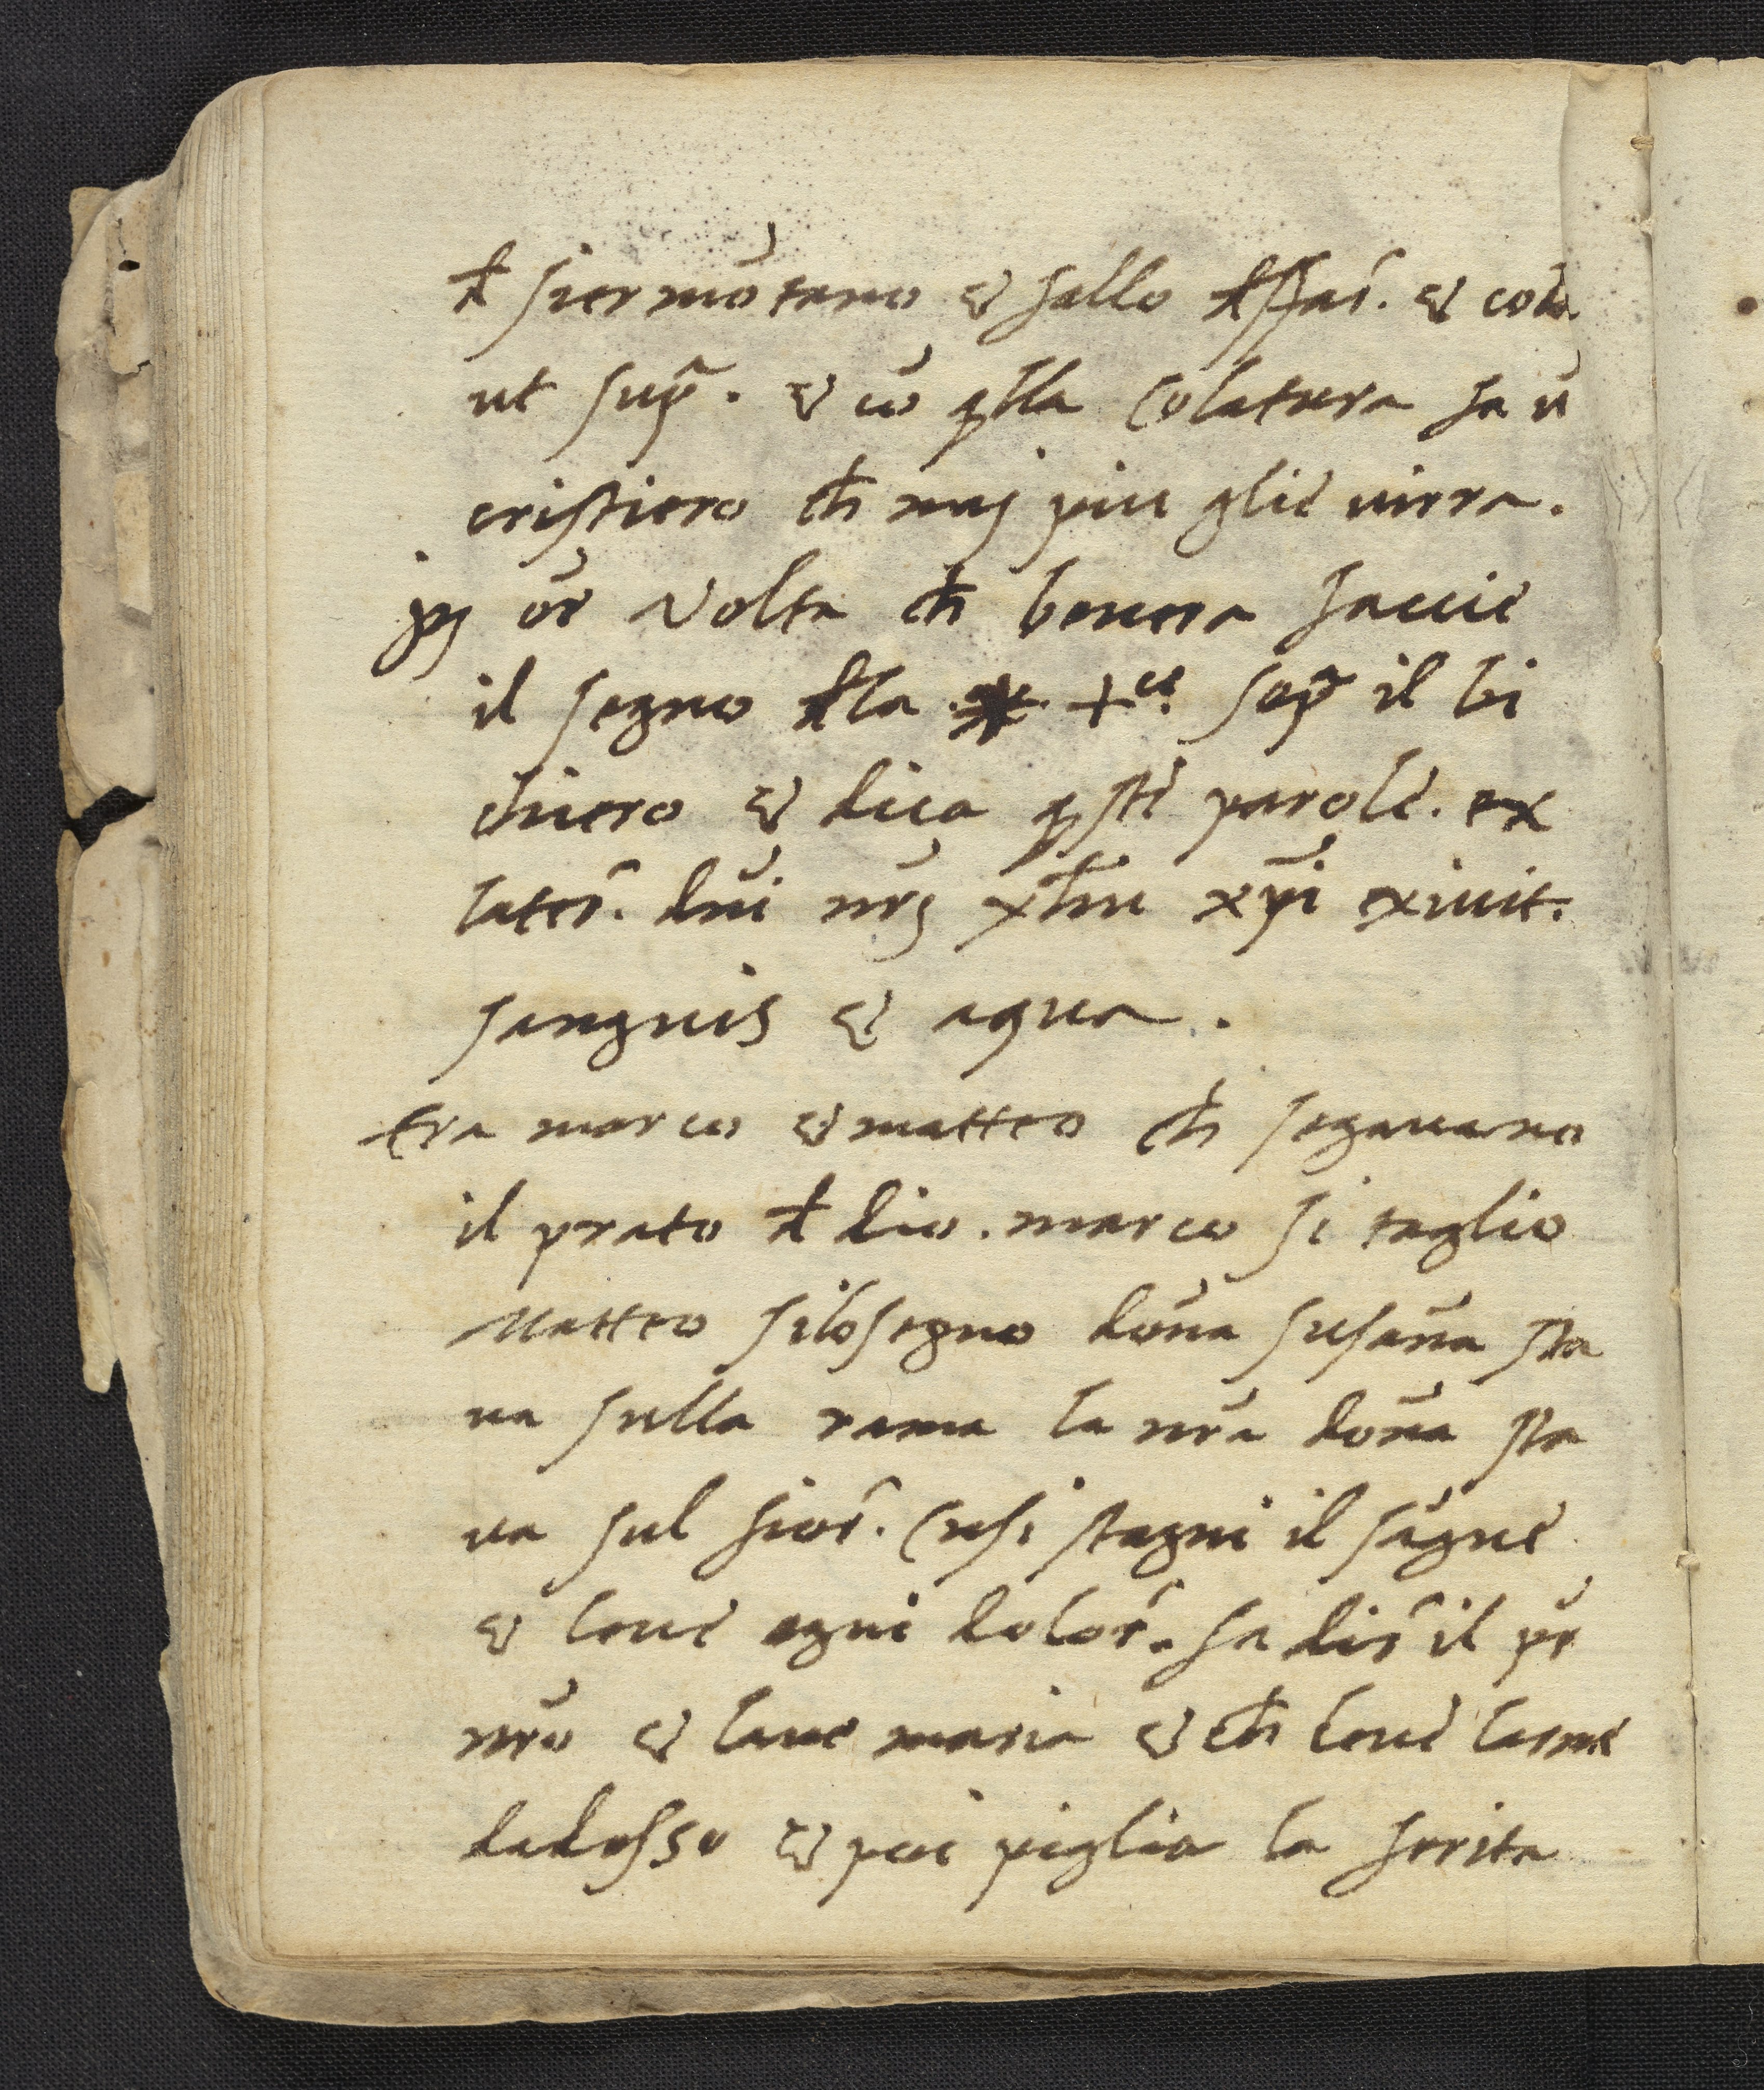 đ siermōtano & fallo đ sfar̃. & cola
ut sup̃. & cō qlla Colatura fa ũ
cristiero ch̃ maj piu glie uirra.
ogni volta ch̃ beuera faccie
il segno đla +ce sop̃ il bi
chiero & dica qste parole. ex
later̃. dñi nrj yħu xp̃i exiuit.
sanguis & aqua.
tra marco & matteo ch̃ segauano
il prato đ dio. marco si taglio
Matteo silo segno doña susaña sta
ua sulla rama la nr̃a doña sta
ua sul fior̃. Cusi stagni il sãgue
& leue ogni dolor̃. fa dir̃ il pr̃
nrõ & laue maria & ch̃ leue larme
dadosso & poi piglia la ferita